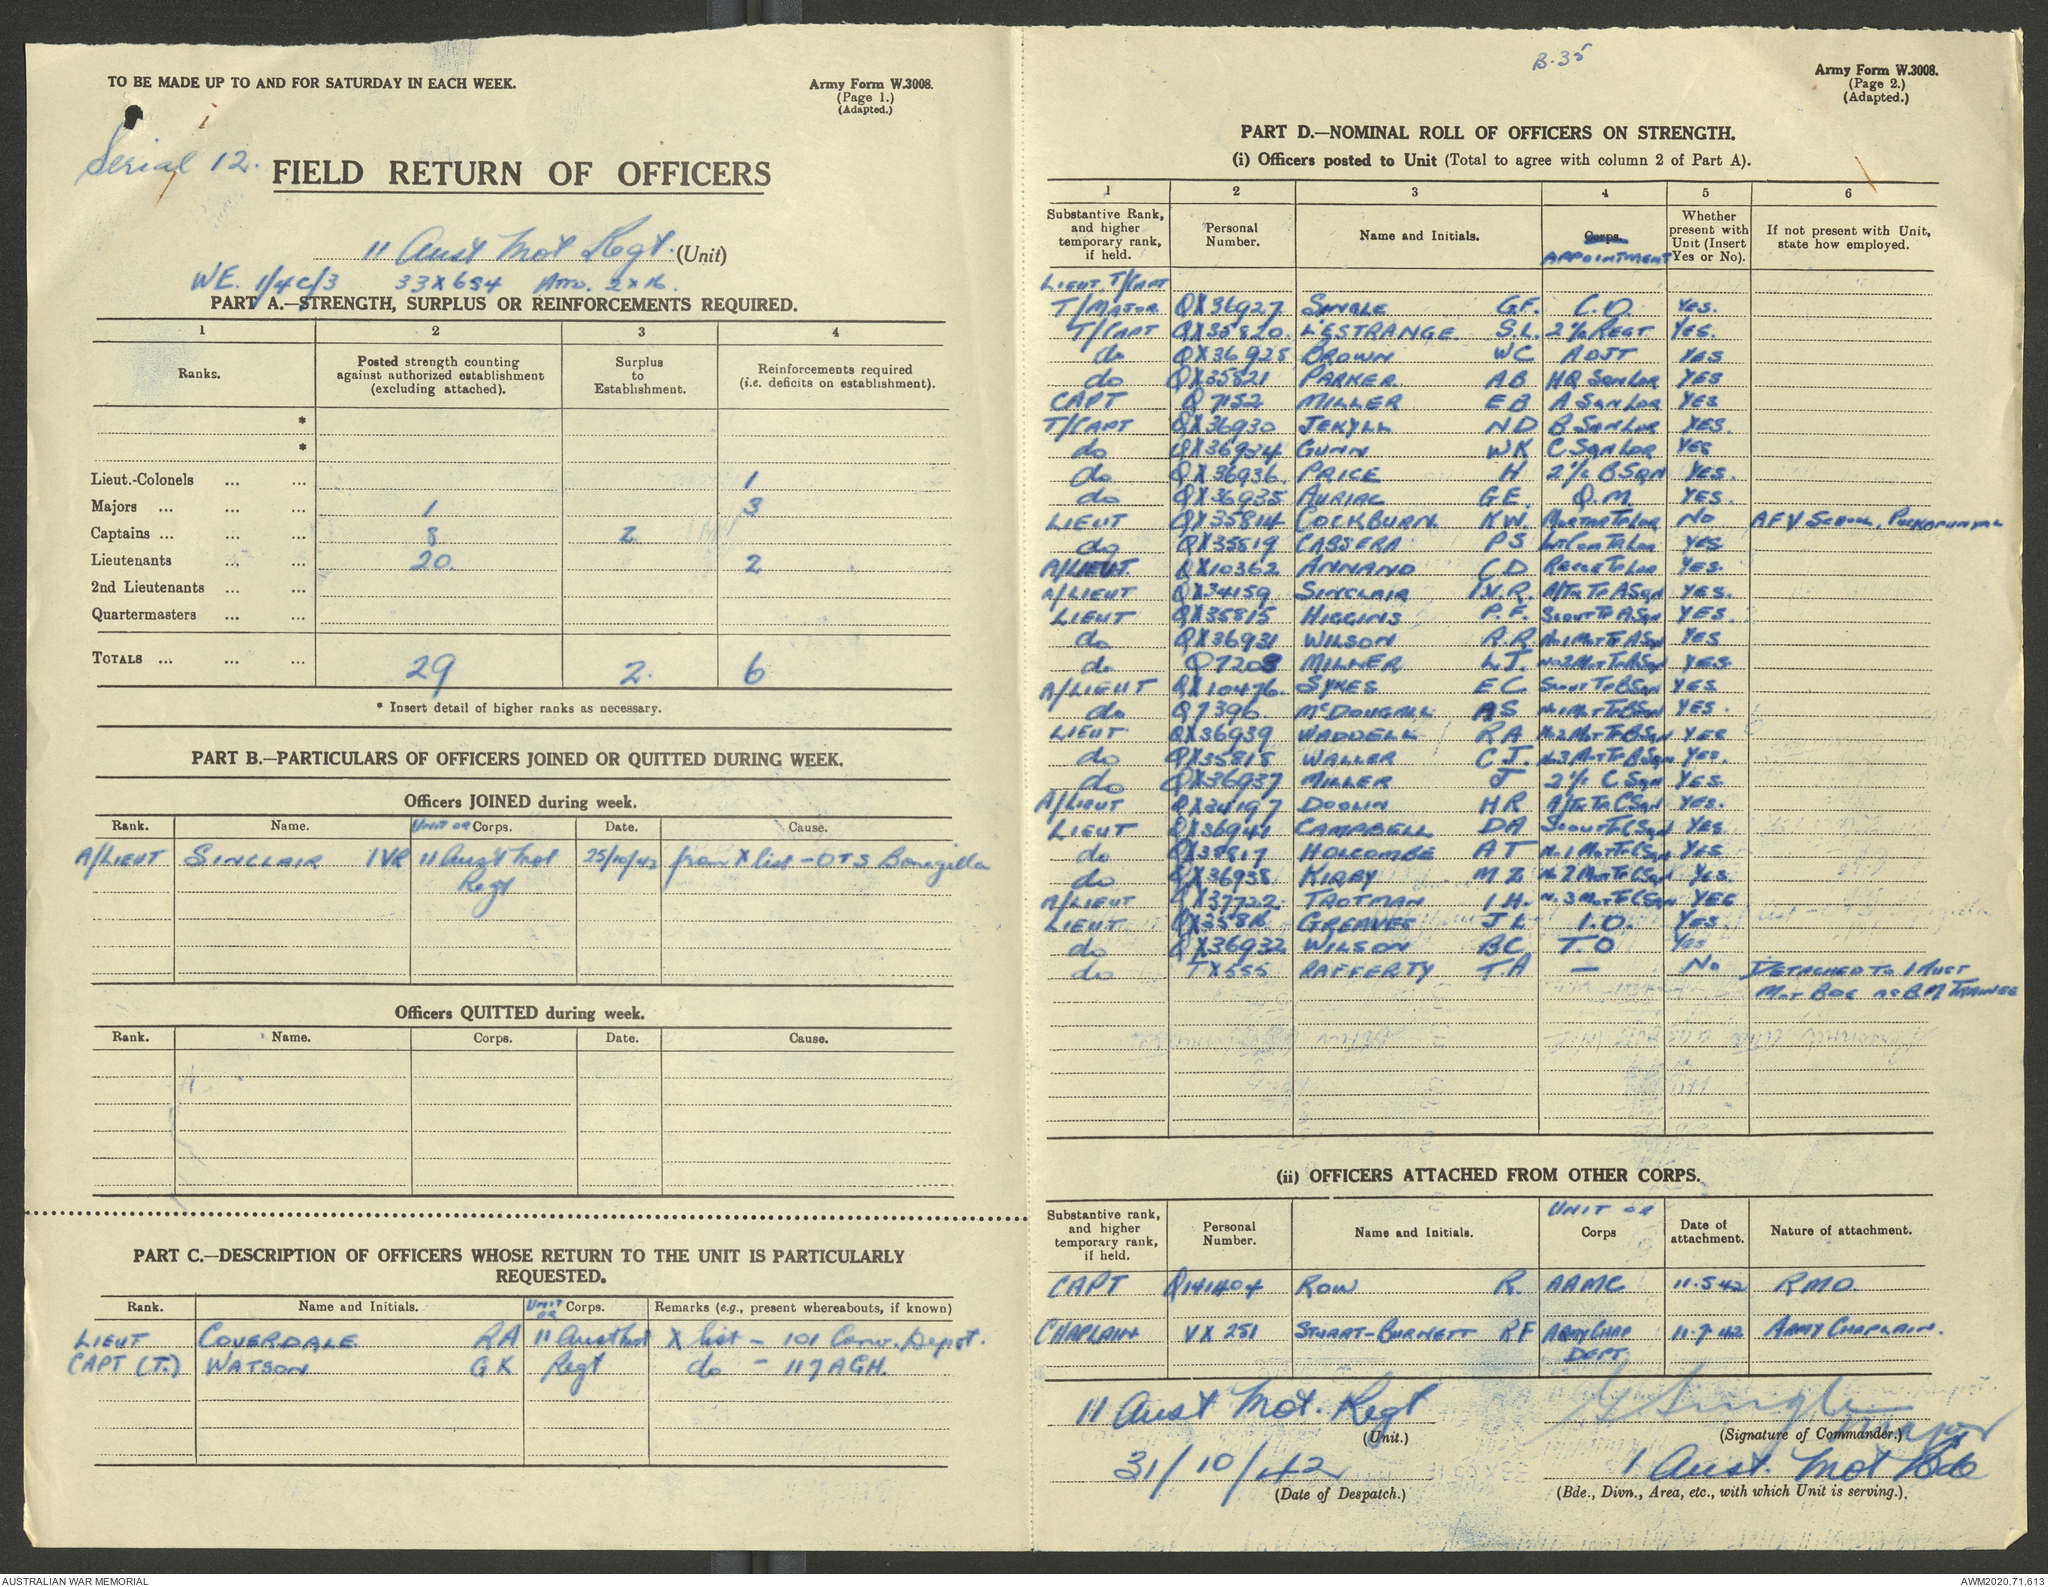 B-35
TO BE MADE UP TO AND FOR SATURDAY IN EACH WEEK.
Army Form W.3008.
(Page 1.)
(Adapted.)
Serial 12.
FIELD RETURN OF OFFICERS
11 Aust Mot Regt. (Unit)
WE. 1/4C/3 33 x 654 Atto. 2 x 16.
PART A.—STRENGTH, SURPLUS OR REINFORCEMENTS REQUIRED.
1 2 3 4
Ranks. Posted strength counting against authorized establishment (excluding attached). Surplus to Establishment. Reinforcements required (i.e. deficits on establishment).
*
*
Lieut.-Colonels ... ... 1
Majors ... ... ... 1 3
Captains ... ... ... 8 2
Lieutenants ... ... 20. 2
2nd Lieutenants ... ...
Quartermasters ... ...
TOTALS ... ... ... 29 2. 6
* Insert detail of higher ranks as necessary.
PART B.—PARTICULARS OF OFFICERS JOINED OR QUITTED DURING WEEK.
Officers JOINED during week.
Rank. Name. UNIT OR Corps. Date. Cause.
A/LIEUT SINCLAIR IVR 11 Aust Mot Regt 25/10/42 from X list - OTS Bonegilla
Officers QUITTED during week.
Rank. Name. Corps. Date. Cause.
PART C.—DESCRIPTION OF OFFICERS WHOSE RETURN TO THE UNIT IS PARTICULARLY
REQUESTED.
Rank. Name and Initials. UNIT OR Corps. Remarks (e.g., present whereabouts, if known)
LIEUT COVERDALE RA 11 Aust Mot X list - 101 Conv. Depot.
CAPT (T.) WATSON G K Regt do - 117 AGH.
Army Form W.3008.
(Page 2.)
(Adapted.)
PART D.—NOMINAL ROLL OF OFFICERS ON STRENGTH.
(i) Officers posted to Unit (Total to agree with column 2 of Part A).
1 2 3 4 5 6
Substantive Rank, and higher temporary rank, if held. Personal Number. Name and Initials. Corps. APPOINTMENT Whether present with Unit (Insert Yes or No). If not present with Unit, state how employed.
LIEUT T/CAPT
T/MAJOR QX36927 SINGLE G.F. C.O. YES.
T/CAPT QX35820 L'ESTRANGE S.L. 2 i/c REGT YES.
do QX36925 BROWN WC ADJT YES
do QX35821 PARKER AB HQ SQN LDR YES
CAPT Q7152 MILLER EB A SQN LDR YES
T/CAPT QX36930 JEKYLL ND B SQN LDR YES.
do QX36924 GUNN WK C SQN LDR YES
do QX36936 PRICE H 2 i/c B SQN YES.
do QX36935 AURIAC G E. Q.M. YES.
LIEUT QX35814 COCKBURN KW. MORTAR TP LDR NO AFV SCHOOL, PUCKAPUNYAL
do QX35819 CASSERA PS YES
A/LIEUT QX10362 ANNAND CD RECCE TP LDR YES.
A/LIEUT QX34159 SINCLAIR I.V.R. A/TK TP A SQN YES.
LIEUT QX35815 HIGGINS P.F. SCOUT TP A SQN YES.
do QX36931 WILSON R.R. No1 MOT TP A SQN YES
do Q7208 MILLER L.J. No2 MOT TP A SQN YES.
A/LIEUT QX10476 SYKES E C SCOUT TP B SQN YES
do Q7396 McDOUGALL AS No1 MOT TP B SQN YES.
LIEUT QX36939 WADDELL RA No2 MOT TP B SQN YES
do QX35818 WALLER C J. No3 MOT TP B SQN YES.
do QX36937 MILLER J 2 i/c C SQN YES.
A/LIEUT QX34197 DOOLIN HR A/TK TP C SQN YES.
LIEUT QX36941 CAMPBELL DA SCOUT TP C SQN YES.
do QX35817 HOLCOMBE A T No.1 MOT TP C SQN YES
do QX36938 KIRBY M Z No 2 MOT TP C SQN YES.
A/LIEUT QX37722 TROTMAN I H. No 3 MOT TP C SQN YES
LIEUT QX35816 GREAVES J L I.O. YES.
do QX36932 WILSON BC T O YES
do TX555 RAFFERTY T A — No DETACHED TO 1 AUST
MOT BDE AS B.M TRAINEE
(ii) OFFICERS ATTACHED FROM OTHER CORPS.
Substantive rank, and higher temporary rank, if held. Personal Number. Name and Initials. UNIT OR Corps Date of attachment. Nature of attachment.
CAPT Q141404 ROW R. AAMC 11.5.42 RMO.
CHAPLAIN VX 251 STUART-BURNETT RF ARMY CHAP DEPT 11.7.42. ARMY CHAPLAIN.
11 Aust Mot. Regt
(Unit.)
G Single Major
(Signature of Commander.)
31/10/42
(Date of Despatch.)
1 Aust. Mot Bde
(Bde., Divn., Area, etc., with which Unit is serving.)
AUSTRALIAN WAR MEMORIAL
AWM2020.71.613